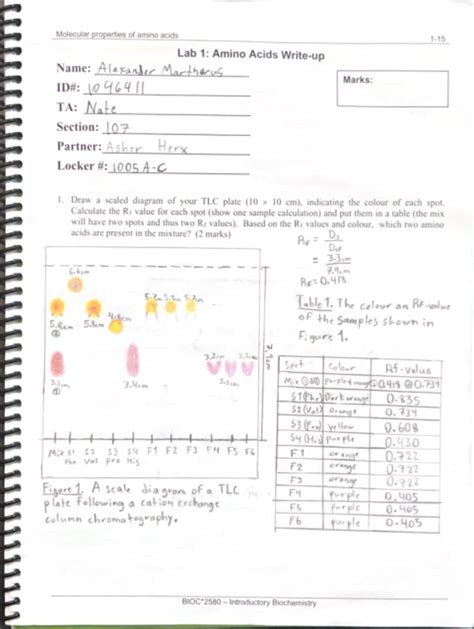 Molecular properties of amino acids 1-15
Lab 1: Amino Acids Write-up
Name: Alexander Martherus
Marks:
ID#: 1046411
TA: Nate
Section: 107
Partner: Asher
Locker #: 1005 A-C
1. Draw a scaled diagram of your TLC plate (10 × 10 cm), indicating the colour of each spot.
Calculate the Rf value for each spot (show one sample calculation) and put them in a table (the mix
will have two spots and thus two Rf values). Based on the Rf values and colour, which two amino
acids are present in the mixture? (2 marks)
RF = Ds
= 3.3cm
7.9cm
RF = 0.418
Table 1. The colour an Rf-value
of the samples shown in
Figure 1.
6.6cm
5.8cm 5.8cm 4.8cm 5.7cm 5.7cm 5.7cm
3.3cm 3.4cm 3.2cm
7.9cm
Mix S1 S2 S3 S4 F1 F2 F3 F4 F5 F6
Phe Val Pro His
Spot Colour Rf-value
Mix ①② 0.418 ② 0.734
S1 (Phe) Dark orange 0.835
S2 (Val) Orange 0.734
S3 (Pro) yellow 0.608
S4 (His) Purple 0.430
F1 orange 0.722
F2 orange 0.722
F3 orange 0.722
F4 purple 0.405
F5 purple 0.405
F6 purple 0.405
Figure 1. A scale diagram of a TLC
plate following a cation exchange
column chromatography.
BIOC*2580 – Introductory Biochemistry